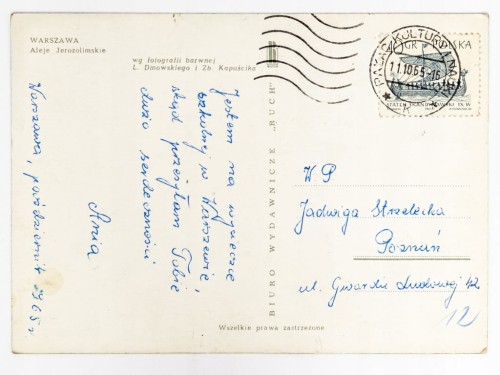 WARSZAWA
Aleje Jerozolimskie
wg fotografii barwnej
L. Danowskiego i Zb. Kapuścika
Jestem na wycieczce
szkolnej w Warszawie,
skąd przesyłam Tobie
dużo serdeczności
Ania
Warszawa, październik 1965 r
BIURO WYDAWNICZE „RUCH"
PAŁAC KULTURY I NAUKI
11.10.65-16
GR POLSKA
STATEK SKANDYNAWSKI IX W.
WP
Jadwiga Strzelecka
Poznań
ul. Gwardii Ludowej 42
12
Wszelkie prawa zastrzeżone